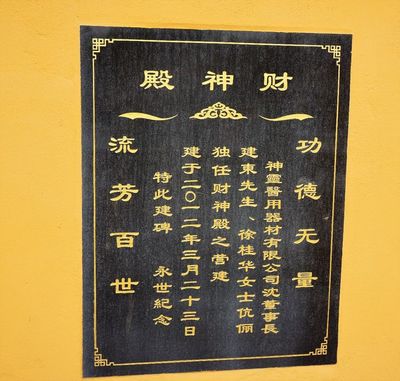 财神殿
功德无量
神靈醫用器材有限公司沈董事長
建東先生、徐桂华女士伉俪
独任财神殿之营建
建于二〇一二年三月二十三日
特此建碑 永世紀念
流芳百世